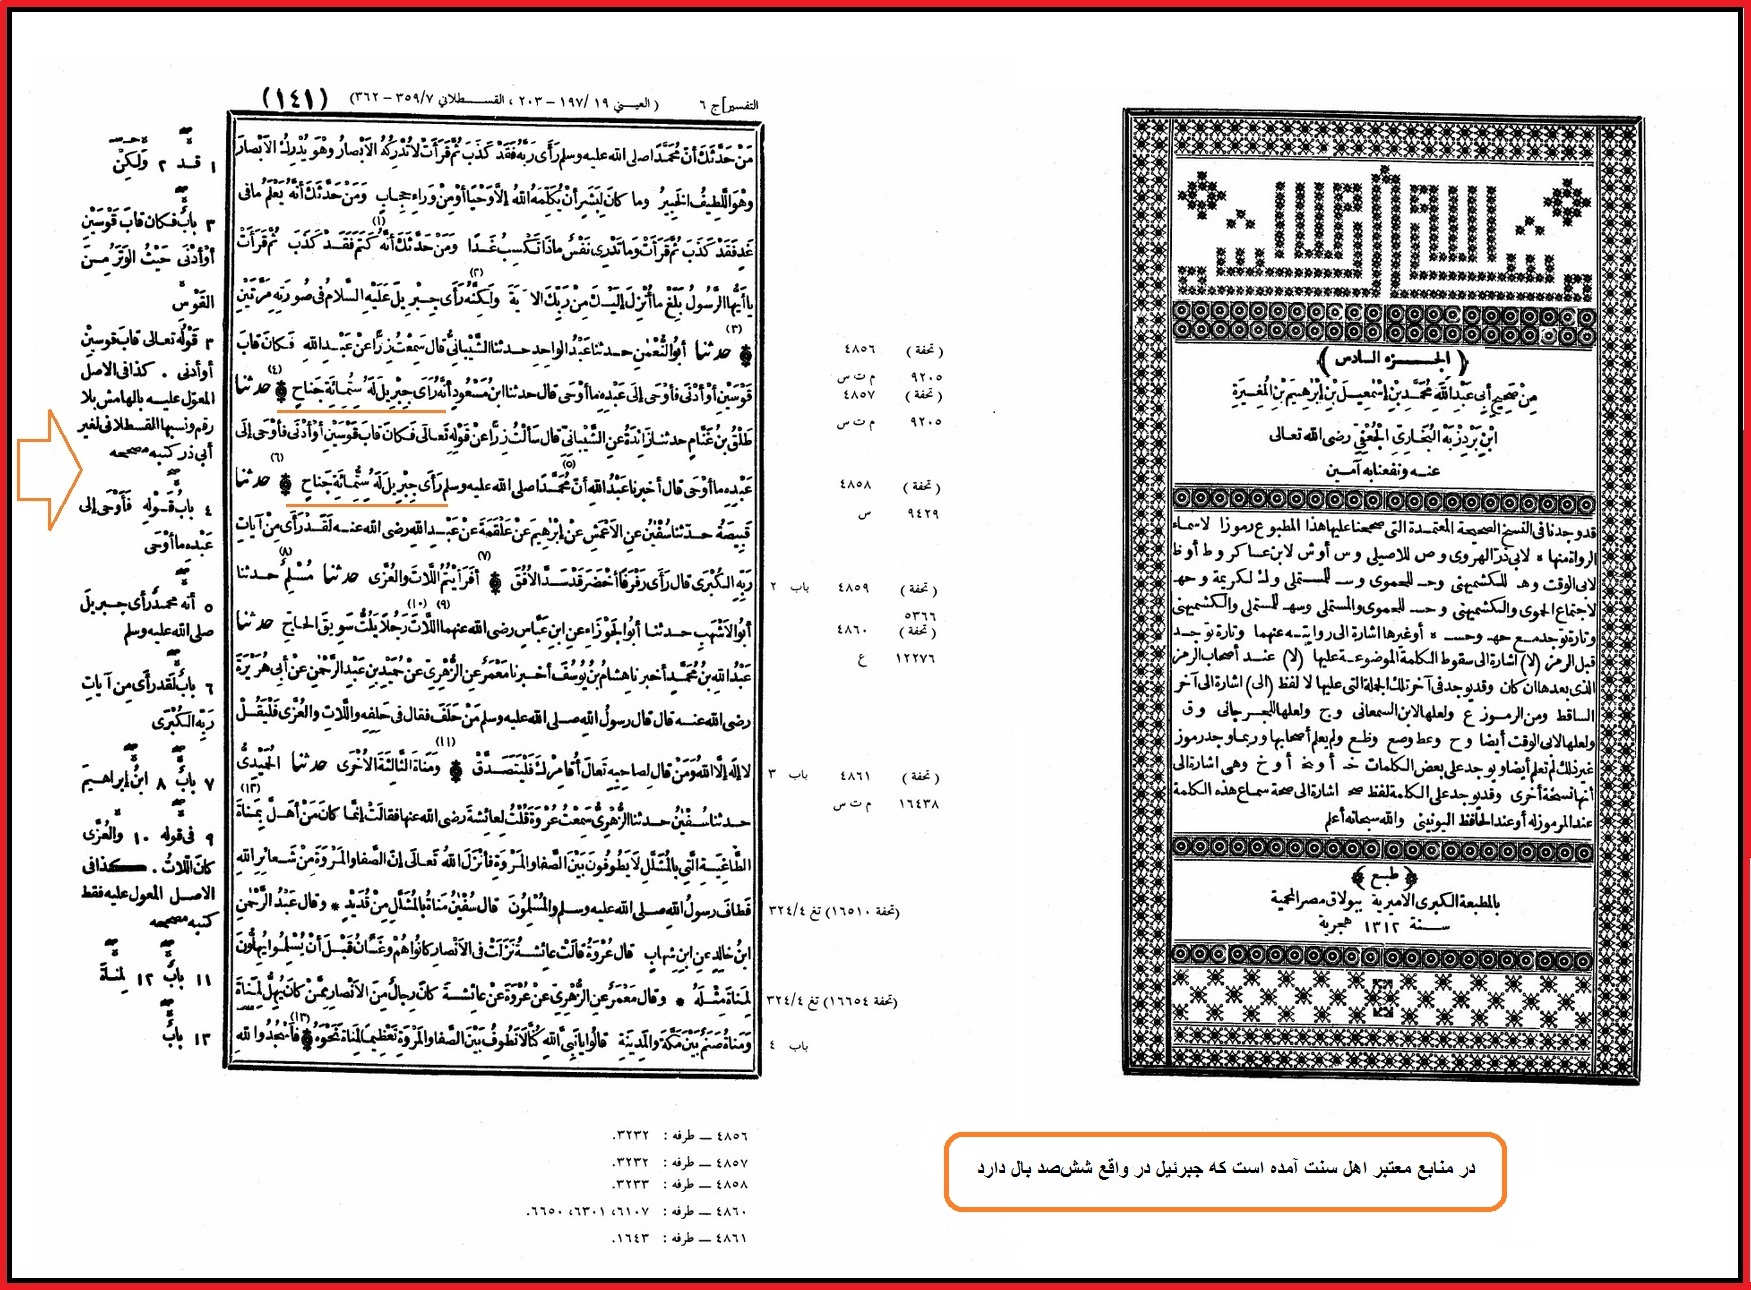 (الجزء السادس)
من صحيح أبي عبد الله محمد بن إسمعيل بن إبرهيم بن المغيرة
ابن بردزبه البخاري الجعفي رضى الله تعالى
عنه ونفعنا به آمين
قد وجدنا فى النسخ الصحيحة المعتمدة التى صححنا عليها هذا المطبوع رموزا لاسماء
الرواة منها ه لابى ذر الهروى و ص للاصيلى و س أو ش لابن عساكر و ط أو ظ
لابى الوقت و هـ للكشميهنى و حـ للحموى و سـ للمستملى و ك لكريمة و حهـ
لاجتماع الحموى والكشميهنى و حسـ للحموى والمستملى و سهـ للمستملى والكشميهنى
وتارة توجد مع حهـ و حسـ ه أو غيرها اشارة الى روايته عنهما وتارة توجد
قبل الرمز (لا) اشارة الى سقوط الكلمة الموضوعة عليها (لا) عند أصحاب الرمز
الذى بعدها ان كان وقد يوجد فى آخر تلك الجملة التى عليها لا لفظ (الى) اشارة الى آخر
الساقط ومن الرموز ع ولعلها لابن السمعانى و ج ولعلها للجرجانى و ق
ولعلها لابى الوقت أيضا و ح و عط و صع و ظع ولم يعلم أصحابها وربما وجد رموز
غير ذلك لم تعلم أيضا ويوجد على بعض الكلمات خـ أو نخـ أو خ وهى اشارة الى
أنها نسخة أخرى وقد يوجد على الكلمة لفظ صحـ اشارة الى صحة سماع هذه الكلمة
عند المرموز له أو عند الحافظ اليونينى والله سبحانه أعلم
(طبع)
بالمطبعة الكبرى الاميرية ببولاق مصر المحمية
سنة ١٣١٢ هجرية
در منابع معتبر اهل سنت آمده است که جبرئیل در واقع شش‌صد بال دارد
التفسير] ج ٦ (العيني ١٩/ ١٩٧ – ٢٠٣ ، القسطلاني ٧/ ٣٥٩ – ٣٦٢) (١٤١)
من حدثك أن محمدا صلى الله عليه وسلم رأى ربه فقد كذب ثم قرأت لا تدركه الأبصار وهو يدرك الأبصار
وهو اللطيف الخبير وما كان لبشر أن يكلمه الله إلا وحيا أو من وراء حجاب ومن حدثك أنه يعلم ما فى
غد فقد كذب ثم قرأت وما تدرى نفس ماذا تكسب غدا ومن حدثك أنه كتم فقد كذب ثم قرأت
يا أيها الرسول بلغ ما أنزل إليك من ربك الآية ولكنه رأى جبريل عليه السلام فى صورته مرتين
حدثنا أبو النعمن حدثنا عبد الواحد حدثنا الشيبانى قال سمعت زرا عن عبد الله فكان قاب
قوسين أو أدنى فأوحى إلى عبده ما أوحى قال حدثنا ابن مسعود أنه رأى جبريل له ستمائة جناح حدثنا
طلق بن غنام حدثنا زائدة عن الشيبانى قال سألت زرا عن قوله تعالى فكان قاب قوسين أو أدنى فأوحى إلى
عبده ما أوحى قال أخبرنا عبد الله أن محمدا صلى الله عليه وسلم رأى جبريل له ستمائة جناح حدثنا
قبيصة حدثنا سفين عن الأعمش عن إبرهيم عن علقمة عن عبد الله رضى الله عنه لقد رأى من آيات
ربه الكبرى قال رأى رفرفا أخضر قد سد الأفق أفرأيتم اللات والعزى حدثنا مسلم حدثنا
أبو الأشهب حدثنا أبو الجوزاء عن ابن عباس رضى الله عنهما اللات رجلا يلت سويق الحاج حدثنا
عبد الله بن محمد أخبرنا هشام بن يوسف أخبرنا معمر عن الزهرى عن حميد بن عبد الرحمن عن أبى هريرة
رضى الله عنه قال قال رسول الله صلى الله عليه وسلم من حلف فقال فى حلفه واللات والعزى فليقل
لا إله إلا الله ومن قال لصاحبه تعال أقامرك فليتصدق ومناة الثالثة الأخرى حدثنا الحميدى
حدثنا سفين حدثنا الزهرى سمعت عروة قلت لعائشة رضى الله عنها فقالت إنما كان من أهل بمناة
الطاغية التى بالمشلل لا يطوفون بين الصفا والمروة فأنزل الله تعالى إن الصفا والمروة من شعائر الله
فطاف رسول الله صلى الله عليه وسلم والمسلمون قال سفين مناة بالمشلل من قديد وقال عبد الرحمن
ابن خالد عن ابن شهاب قال عروة قالت عائشة نزلت فى الأنصار كانوا هم وغسان قبل أن يسلموا يهلون
لمناة مثله وقال معمر عن الزهرى عن عروة عن عائشة كان رجال من الأنصار ممن كان يهل لمناة
ومناة صنم بين مكة والمدينة قالوا يا نبى الله كنا لا نطوف بين الصفا والمروة تعظيما لمناة نحوه فاسجدوا لله
١ قد ٢ ولكن
٣ باب فكان قاب قوسين
أو أدنى حيث الوتر من
القوس
٣ قوله تعالى قاب قوسين
أو أدنى . كذا فى الاصل
المعول عليه بالهامش بلا
رقم ونسبها القسطلانى لغير
أبى ذر كتبه مصححه
٤ باب قوله فأوحى إلى
عبده ما أوحى
٥ أنه محمد رأى جبريل
صلى الله عليه وسلم
٦ باب لقد رأى من آيات
ربه الكبرى
٧ باب ٨ ابن إبراهيم
٩ فى قوله ١٠ والعزى
كان اللات . كذا فى
الاصل المعول عليه فقط
كتبه مصححه
١١ باب ١٢ لمناة
١٣ باب
(تحفة) ٤٨٥٦
٩٢٠٥ م ت س
(تحفة) ٤٨٥٧
٩٢٠٥ م ت س
(تحفة) ٤٨٥٨
٩٤٢٩ س
(تحفة) ٤٨٥٩ باب ٢
٥٣٦٦
(تحفة) ٤٨٦٠
١٢٢٧٦ ع
(تحفة) ٤٨٦١ باب ٣
١٦٤٣٨ م ت س
(تحفة ١٦٥١٠) تغ ٣٢٤/٤
(تحفة ١٦٦٥٤) تغ ٣٢٤/٤
باب ٤
٤٨٥٦ ــ طرفه : ٣٢٣٢.
٤٨٥٧ ــ طرفه : ٣٢٣٢.
٤٨٥٨ ــ طرفه : ٣٢٣٣.
٤٨٦٠ ــ طرفه : ٦١٠٧، ٦٣٠١، ٦٦٥٠.
٤٨٦١ ــ طرفه : ١٦٤٣.